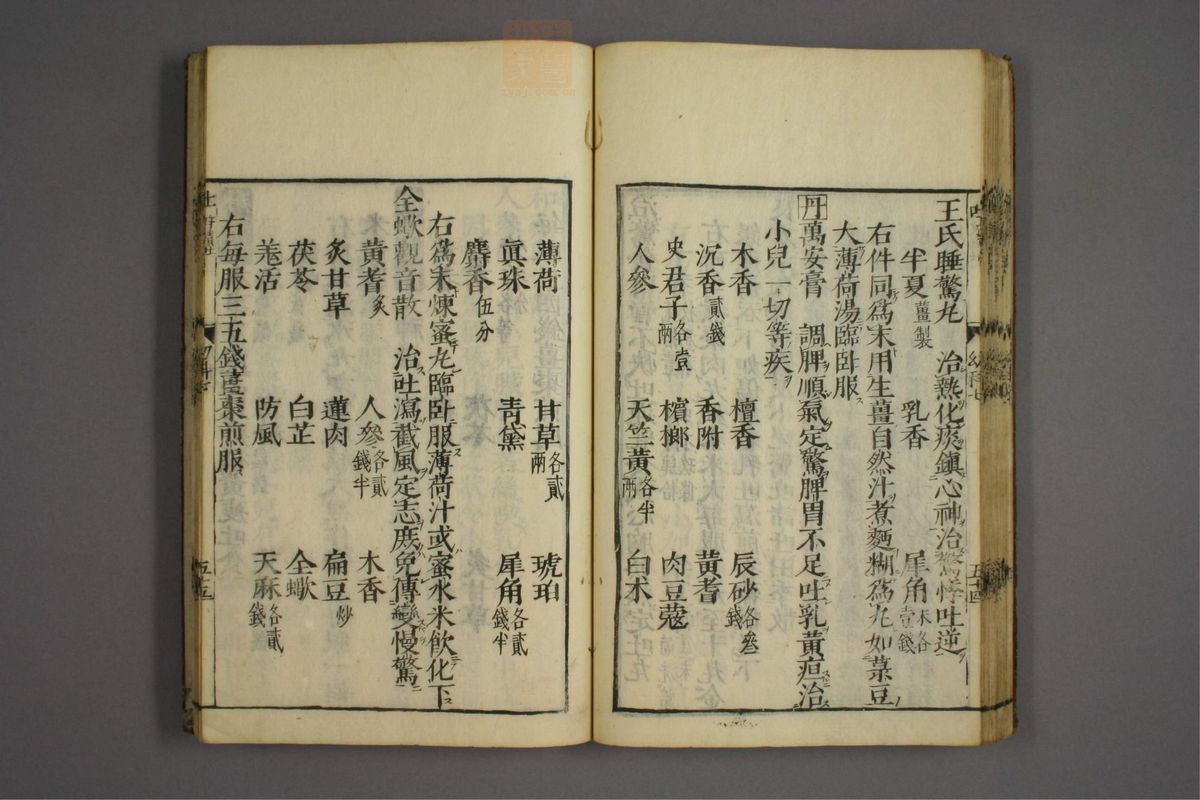 王氏睡驚丸　治熱化痰鎮心神治驚怪吐逆
半夏薑製　乳香　犀角末各壹錢
右件同爲末用生薑自然汁煮麵糊爲丸如菉豆
大薄荷湯臨臥服
丹萬安膏　調脾順氣定驚脾胃不足吐乳黃疸治
小兒一切等疾
木香　檀香　辰砂各叁錢
沉香貳錢　香附　黃耆
史君子各壹兩　檳榔　肉豆蔻
人參　天竺黃各半兩　白朮
薄荷　甘草各貳兩　琥珀
眞珠　青黛　犀角各貳錢半
麝香伍分
右爲末煉蜜丸臨臥服薄荷汁或蜜水米飲化下
全蠍觀音散　治吐瀉截風定志庶免傳變慢驚
黃耆炙　人參各貳錢半　木香
炙甘草　蓮肉　扁豆炒
茯苓　白芷　全蠍
羗活　防風　天麻各貳錢
右每服三五錢薑棗煎服